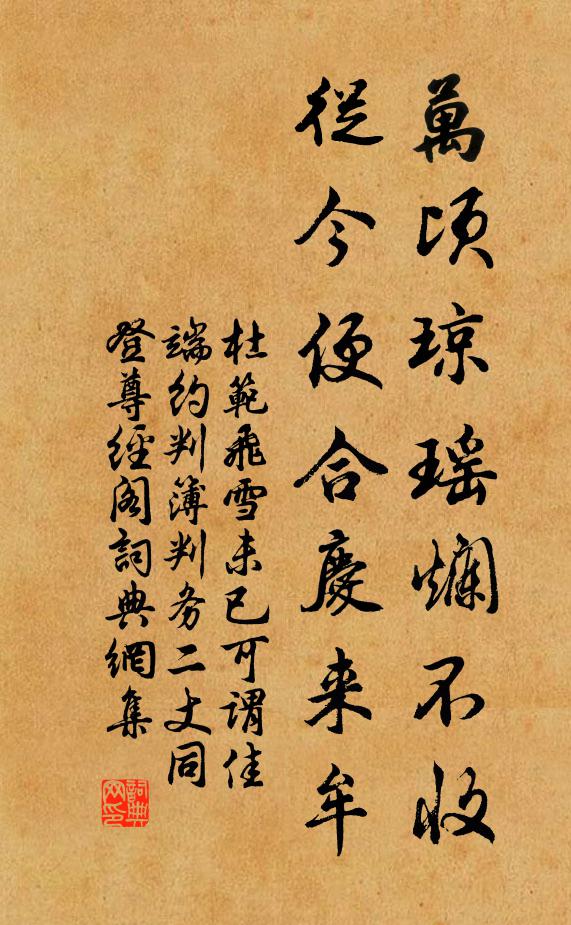 萬頃琼瑶爛不收
從今便合慶来牟
杜範飛雪未已可謂佳
端約判簿判务二丈同
登尊經閣詞典網集
詞典网印